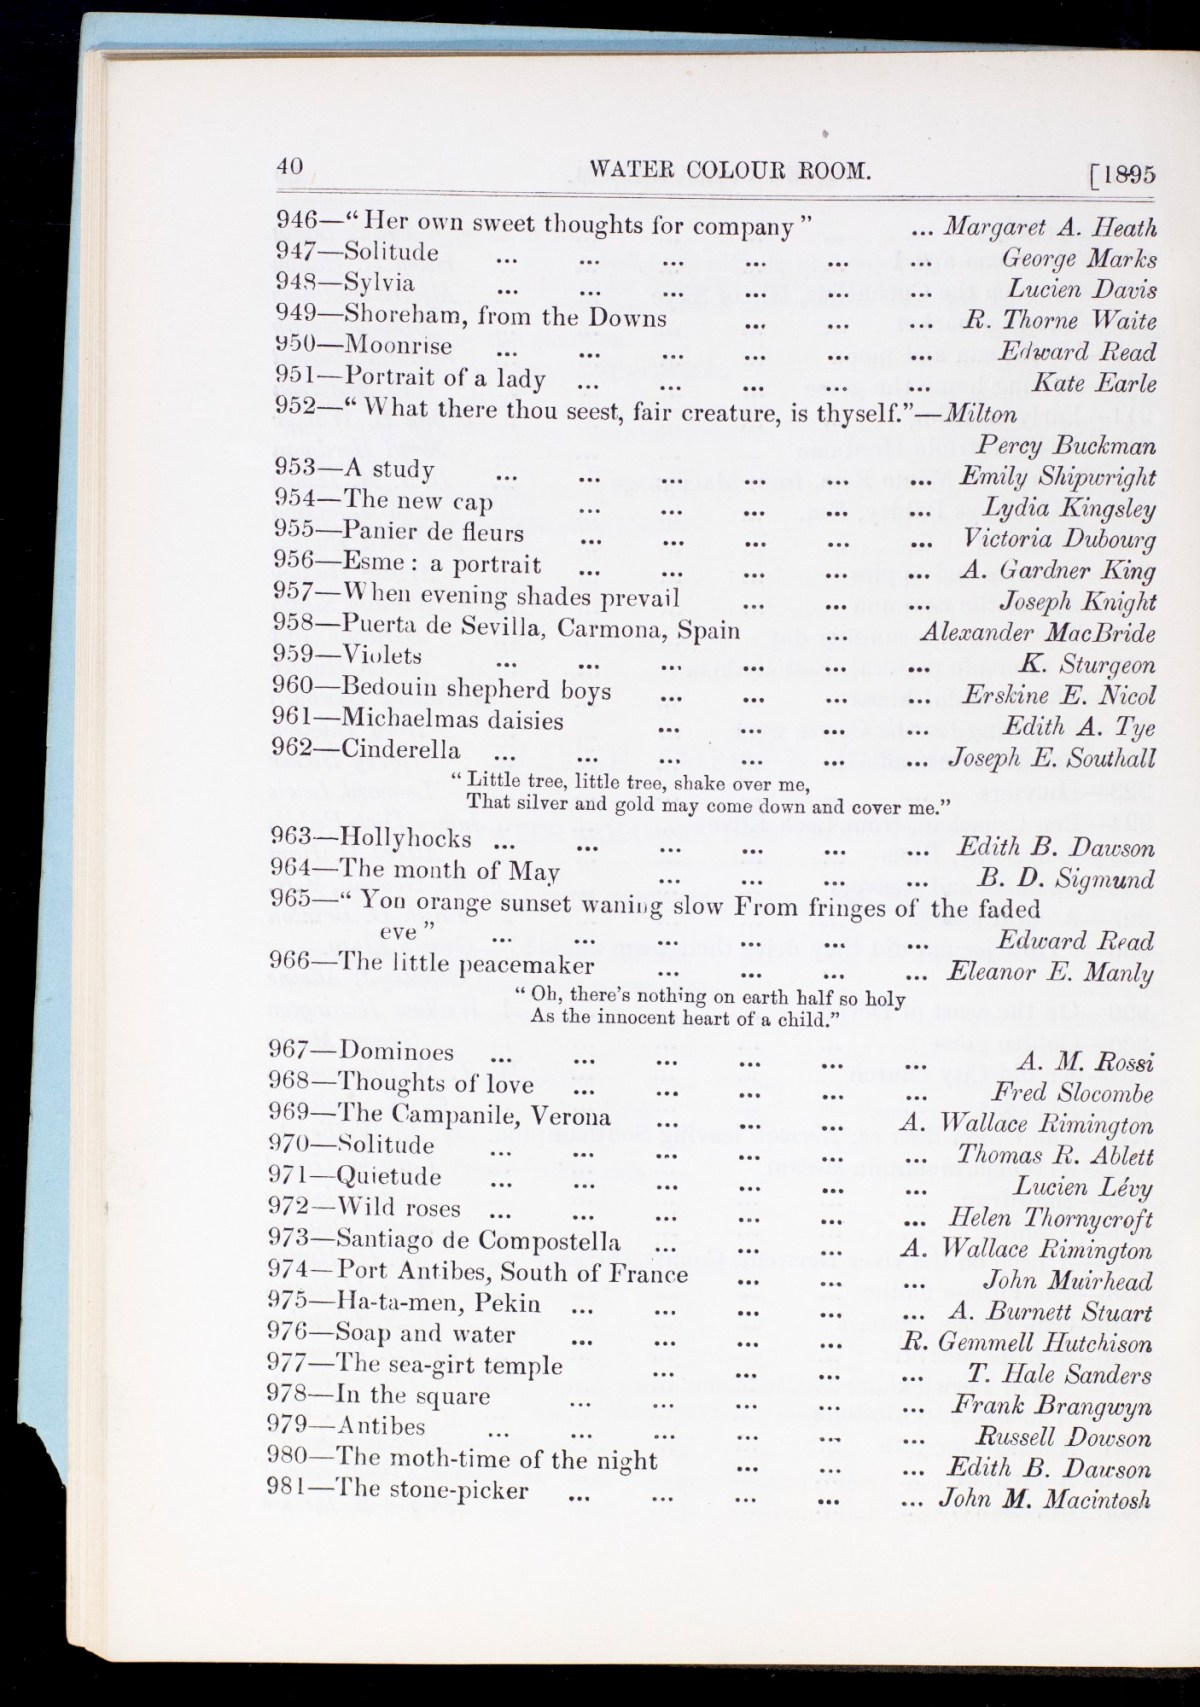 40 WATER COLOUR ROOM. [1895
946—“Her own sweet thoughts for company” ... Margaret A. Heath
947—Solitude ... ... ... ... ... ... George Marks
948—Sylvia ... ... ... ... ... ... Lucien Davis
949—Shoreham, from the Downs ... ... ... R. Thorne Waite
950—Moonrise ... ... ... ... ... ... Edward Read
951—Portrait of a lady ... ... ... ... ... Kate Earle
952—“What there thou seest, fair creature, is thyself.”—Milton
Percy Buckman
953—A study ... ... ... ... ... ... Emily Shipwright
954—The new cap ... ... ... ... ... Lydia Kingsley
955—Panier de fleurs ... ... ... ... ... Victoria Dubourg
956—Esme : a portrait ... ... ... ... ... A. Gardner King
957—When evening shades prevail ... ... ... Joseph Knight
958—Puerta de Sevilla, Carmona, Spain ... Alexander MacBride
959—Violets ... ... ... ... ... ... K. Sturgeon
960—Bedouin shepherd boys ... ... ... ... Erskine E. Nicol
961—Michaelmas daisies ... ... ... ... Edith A. Tye
962—Cinderella ... ... ... ... ... ... Joseph E. Southall
“Little tree, little tree, shake over me,
That silver and gold may come down and cover me.”
963—Hollyhocks ... ... ... ... ... ... Edith B. Dawson
964—The month of May ... ... ... ... B. D. Sigmund
965—“Yon orange sunset waning slow From fringes of the faded
eve” ... ... ... ... ... ... Edward Read
966—The little peacemaker ... ... ... ... Eleanor E. Manly
“Oh, there's nothing on earth half so holy
As the innocent heart of a child.”
967—Dominoes ... ... ... ... ... ... A. M. Rossi
968—Thoughts of love ... ... ... ... ... Fred Slocombe
969—The Campanile, Verona ... ... ... A. Wallace Rimington
970—Solitude ... ... ... ... ... ... Thomas R. Ablett
971—Quietude ... ... ... ... ... ... Lucien Lévy
972—Wild roses ... ... ... ... ... ... Helen Thornycroft
973—Santiago de Compostella ... ... ... A. Wallace Rimington
974—Port Antibes, South of France ... ... ... John Muirhead
975—Ha-ta-men, Pekin ... ... ... ... ... A. Burnett Stuart
976—Soap and water ... ... ... ... R. Gemmell Hutchison
977—The sea-girt temple ... ... ... ... T. Hale Sanders
978—In the square ... ... ... ... ... Frank Brangwyn
979—Antibes ... ... ... ... ... ... Russell Dowson
980—The moth-time of the night ... ... ... Edith B. Dawson
981—The stone-picker ... ... ... ... ... John M. Macintosh